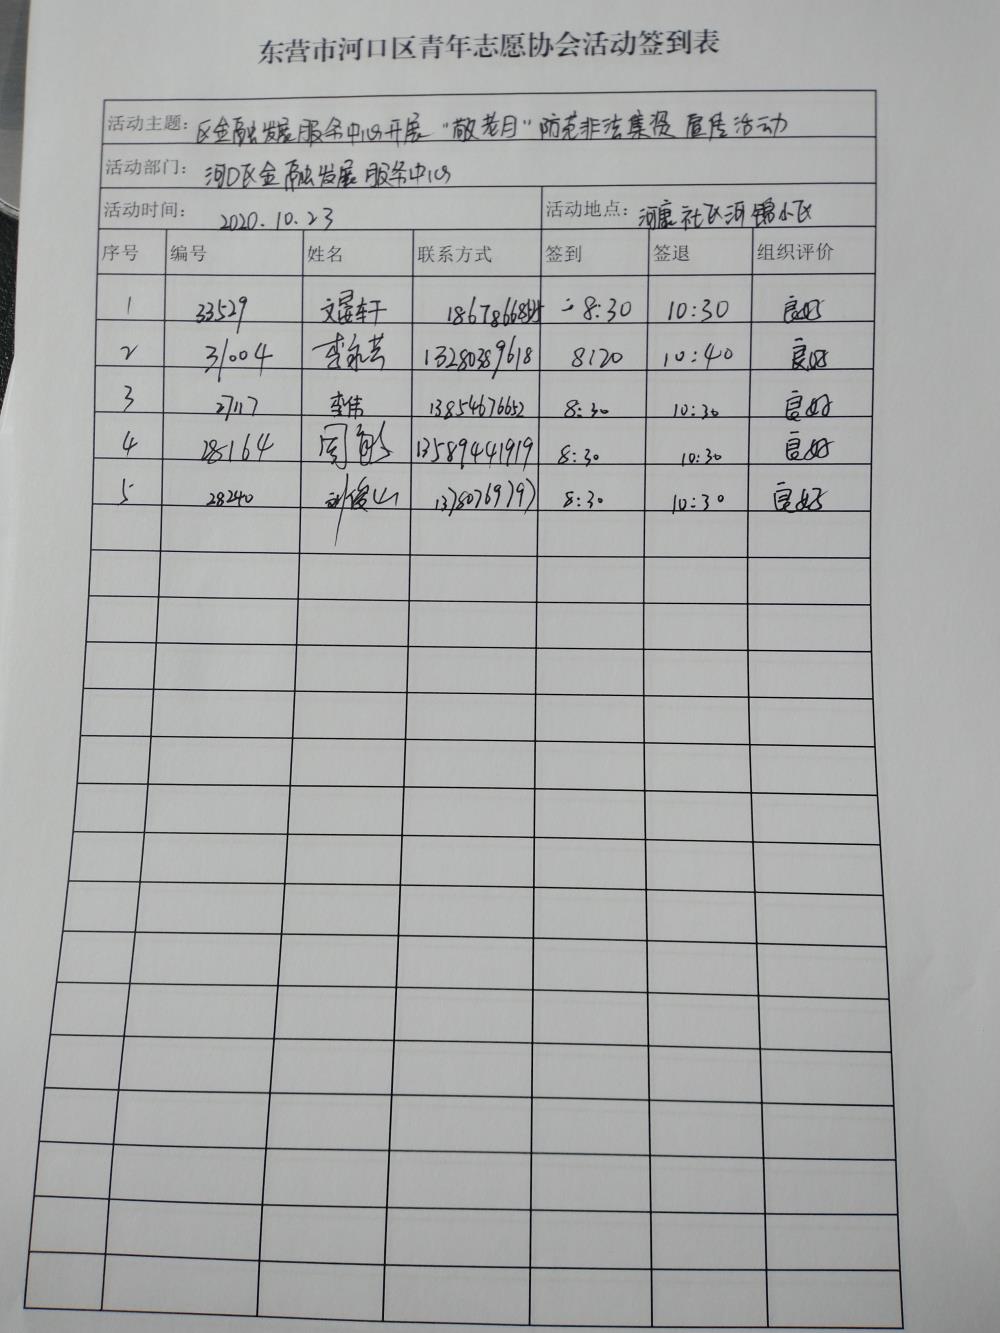 东营市河口区青年志愿协会活动签到表
活动主题: 区金融发展服务中心开展“敬老月”防范非法集资宣传活动
活动部门: 河口区金融发展服务中心
活动时间: 2020.10.23 活动地点: 河康社区河锦小区
序号 编号 姓名 联系方式 签到 签退 组织评价
1 33529 8:30 10:30 良好
2 31004 李永芳 13280389618 8:20 10:40 良好
3 27117 李伟 13854676652 8:30 10:30 良好
4 28164 周 13589441919 8:30 10:30 良好
5 28240 刘俊山 8:30 10:30 良好